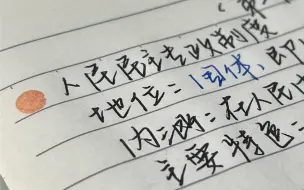 人民民主专政制度
地位：国体，即
内涵：在人民
主要特色：